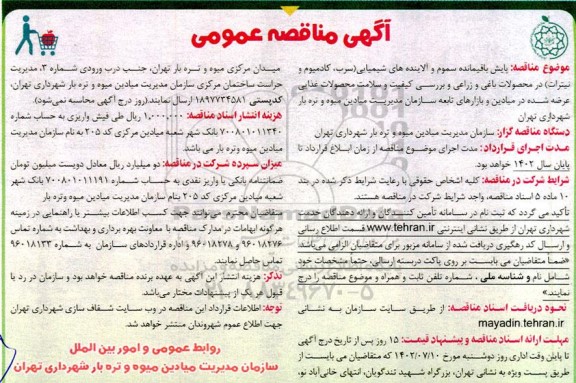 آگهی مناقصه عمومی
موضوع مناقصه: پایش باقیمانده سموم و آلاینده های شیمیایی(سرب، کادمیوم و
نیترات) در محصولات باغی و زراعی و بررسی کیفیت و سلامت محصولات غذایی
عرضه شده در میادین و بازارهای تابعه سازمان مدیریت میادین میوه و تره بار
شهرداری تهران
دستگاه مناقصه گزار: سازمان مدیریت میادین میوه و تره بار شهرداری تهران
مدت اجرای قرارداد: مدت اجرای موضوع مناقصه از زمان ابلاغ قرارداد تا
پایان سال ۱۴۰۲ خواهد بود.
شرایط شرکت در مناقصه: کلیه اشخاص حقوقی با رعایت شرایط ذکر شده در بند
۱۰ ماده ۵ اسناد مناقصه، واجد شرایط شرکت در مناقصه هستند.
تأکید می گردد که ثبت نام در سامانه تأمین کنندگان وارائه دهندگان خدمت
شهرداری تهران از طریق نشانی اینترنتی www.tehran.ir قسمت اطلاع رسانی
و ارسال کد رهگیری دریافت شده از سامانه مزبور برای متقاضیان الزامی می‌باشد
«ضمناً متقاضیان می بایست بر روی پاکت دربسته ارسالی، حتماً مشخصات خود
شامل نام و شناسه ملی ، شماره تلفن ثابت و همراه و موضوع مناقصه را درج
نمایند.»
نحوه دریافت اسناد مناقصه: از طریق سایت سازمان به نشانی
mayadin.tehran.ir
مهلت ارائه اسناد مناقصه و پیشنهاد قیمت: ۱۵ روز پس از تاریخ درج آگهی
تا پایان وقت اداری روز دوشنبه مورخ ۱۴۰۲/۰۷/۱۰ که متقاضیان می بایست از
طریق پست ویژه به نشانی تهران، بزرگراه شهید تندگویان، انتهای خانی‌آباد نو،
میدان مرکزی میوه و تره بار تهران، جنب درب ورودی شماره ۳، مدیریت
حراست ساختمان مرکزی سازمان مدیریت میادین میوه و تره بار شهرداری تهران،
کدپستی ۱۸۹۷۷۳۴۵۸۱ ارسال نمایند.(روز درج آگهی محاسبه نمی‌شود)
هزینه انتشار اسناد مناقصه: ۱,۰۰۰,۰۰۰ ریال طی فیش واریزی به حساب شماره
۷۰۰۸۰۱۰۱۱۳۴۰ بانک شهر شعبه میادین مرکزی کد ۲۰۵ به نام سازمان مدیریت
میادین میوه وتره بار می باشد.
میزان سپرده شرکت در مناقصه: دو میلیارد ریال معادل دویست میلیون تومان
ضمانتنامه بانکی یا واریز نقدی به حساب شماره ۷۰۰۸۰۱۰۱۱۱۹۱ بانک شهر
شعبه میادین مرکزی کد ۲۰۵ بنام سازمان مدیریت میادین میوه وتره بار
متقاضیان محترم می‌توانند جهت کسب اطلاعات بیشتر یا راهنمایی در زمینه
هرگونه ابهامات در مدارک مناقصه با معاونت بهره برداری و بهداشت به شماره تماس
۹۶۰۱۸۲۷۶ و ۹۶۰۱۸۲۷۸ و اداره قراردادهای سازمان به شماره ۹۶۰۱۸۱۳۳
تماس حاصل نمایند.
تذکر: هزینه انتشار این آگهی به عهده برنده مناقصه خواهد بود و سازمان در رد یا
قبول هر یک از پیشنهادات مختار می‌باشد.
توجه: اطلاعات قرارداد این مناقصه در وب سایت شفاف سازی شهرداری تهران
جهت اطلاع عموم شهروندان منتشر خواهد شد.
روابط عمومی و امور بین الملل
سازمان مدیریت میادین میوه و تره بار شهرداری تهران